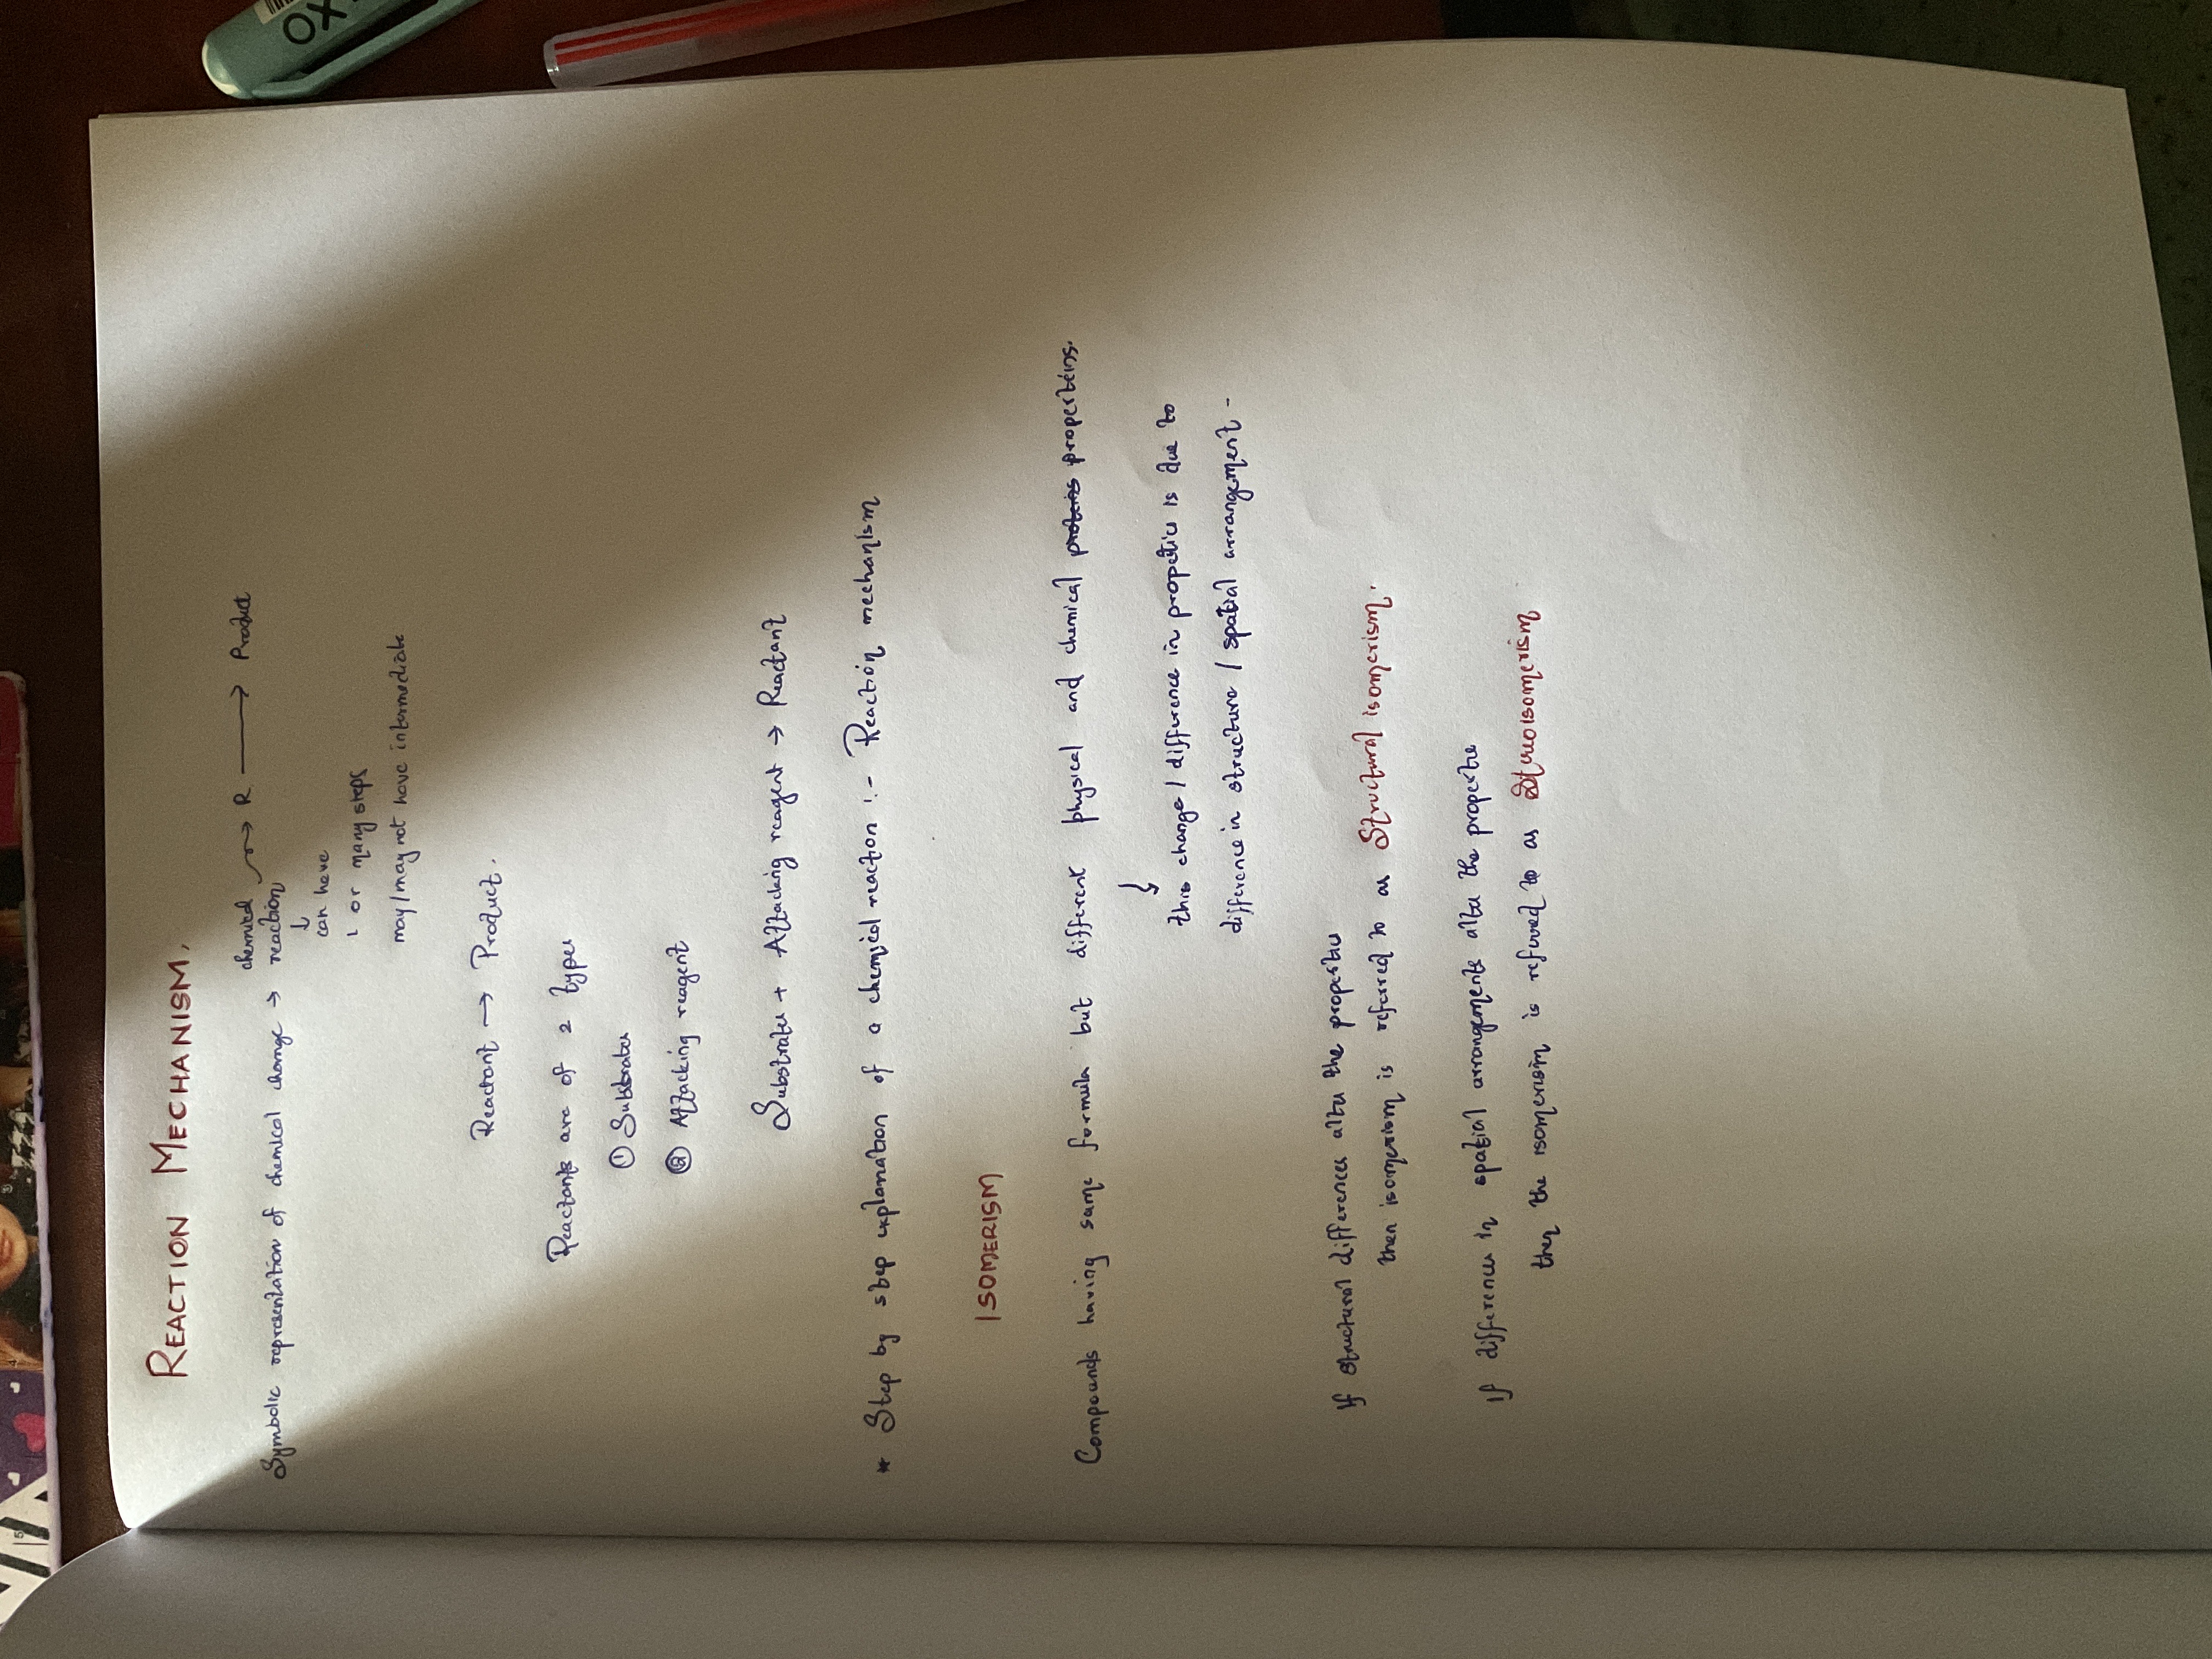 REACTION MECHANISM.
Symbolic reprsentation of chemical change → chemical reaction → R → Product
↓
can have
1 or many steps
may/may not have intermediate
Reactant → Product.
Reactants are of 2 types
① Substrates
② Attacking reagent
Substrates + Attacking reagent → Reactant
* Step by step explanation of a chemical reaction :- Reaction mechanism
ISOMERISM
Compounds having same formula but different physical and chemical properteins.
this change / difference in propeties is due to
difference in structure / spatial arrangement -
If structural differences alter the properties
then isomerism is referred to as Structural isomerism.
If differences in spatial arrangements alter the properties
then the isomerism is referred to as Stereoisomerism
OXO